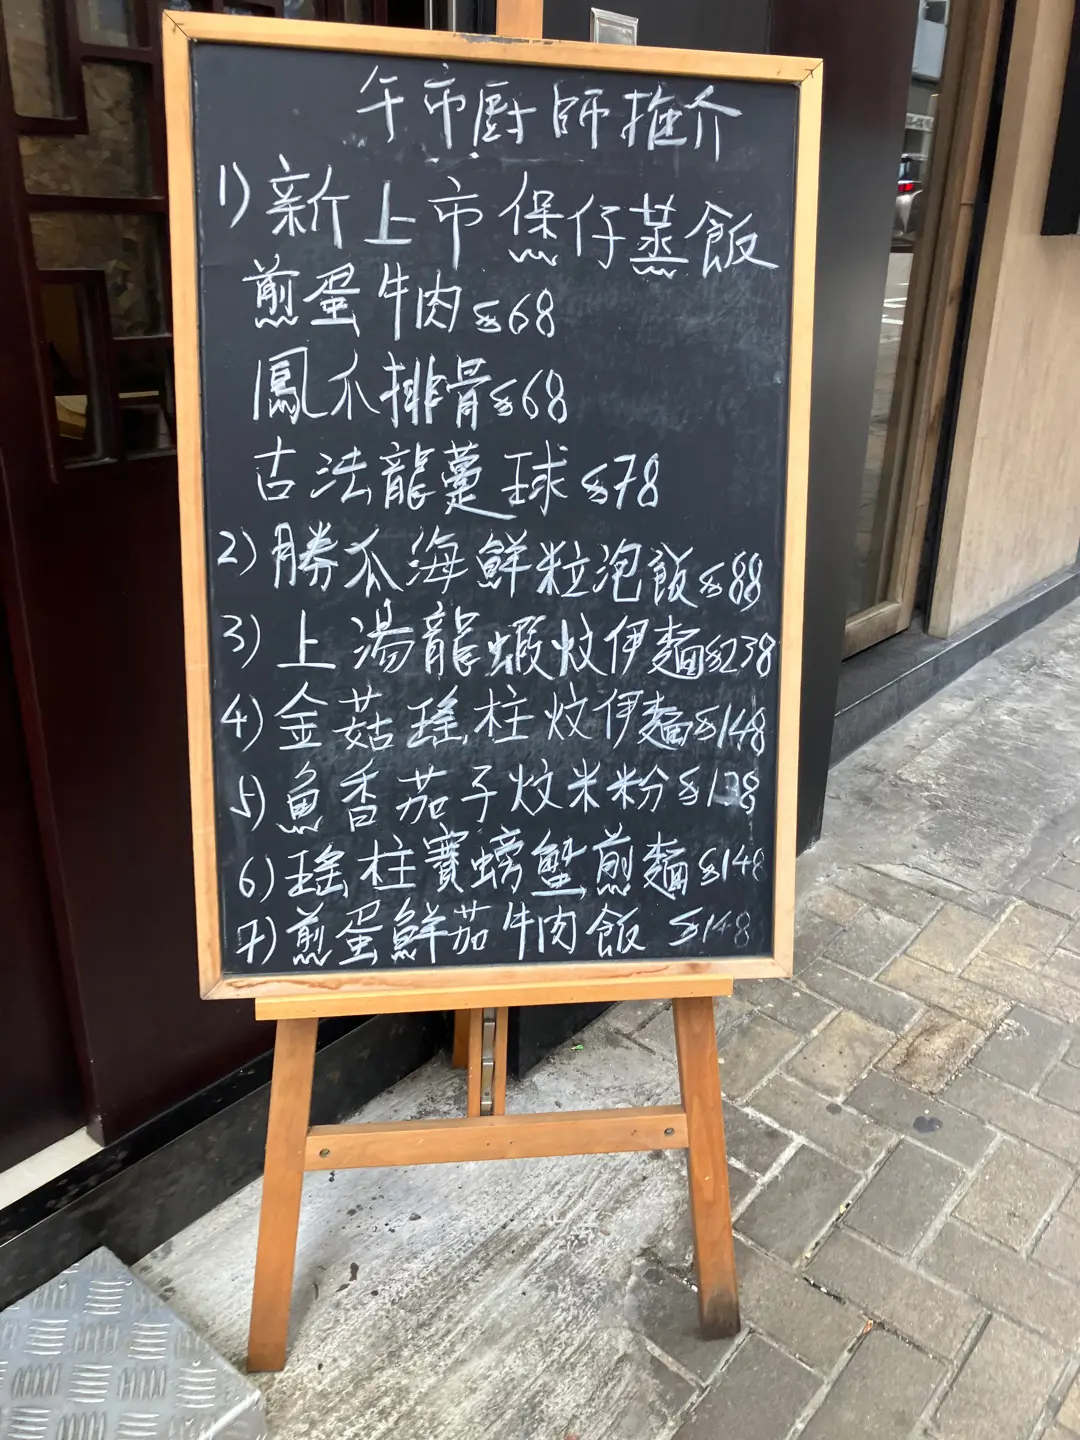 午市廚師推介
1) 新上市煲仔蒸飯
煎蛋牛肉 $68
鳳爪排骨 $68
古法龍躉球 $78
2) 勝瓜海鮮粒泡飯 $88
3) 上湯龍蝦炆伊麵 $238
4) 金菇瑤柱炆伊麵 $148
5) 魚香茄子炆米粉 $138
6) 瑤柱賽螃蟹煎麵 $148
7) 煎蛋鮮茄牛肉飯 $148